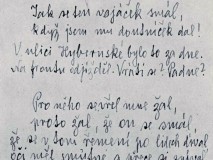 Jak se ten vojáček smál,
když jsem mu doušmek dal!
V ulici Hybernské bylo to za dne.
Na frontu odjíždí? Vrátí se? Padne?
Pro něho sevřel mne žal,
proto žal, že on se smál,
že se v tom řemení po
očí měl a